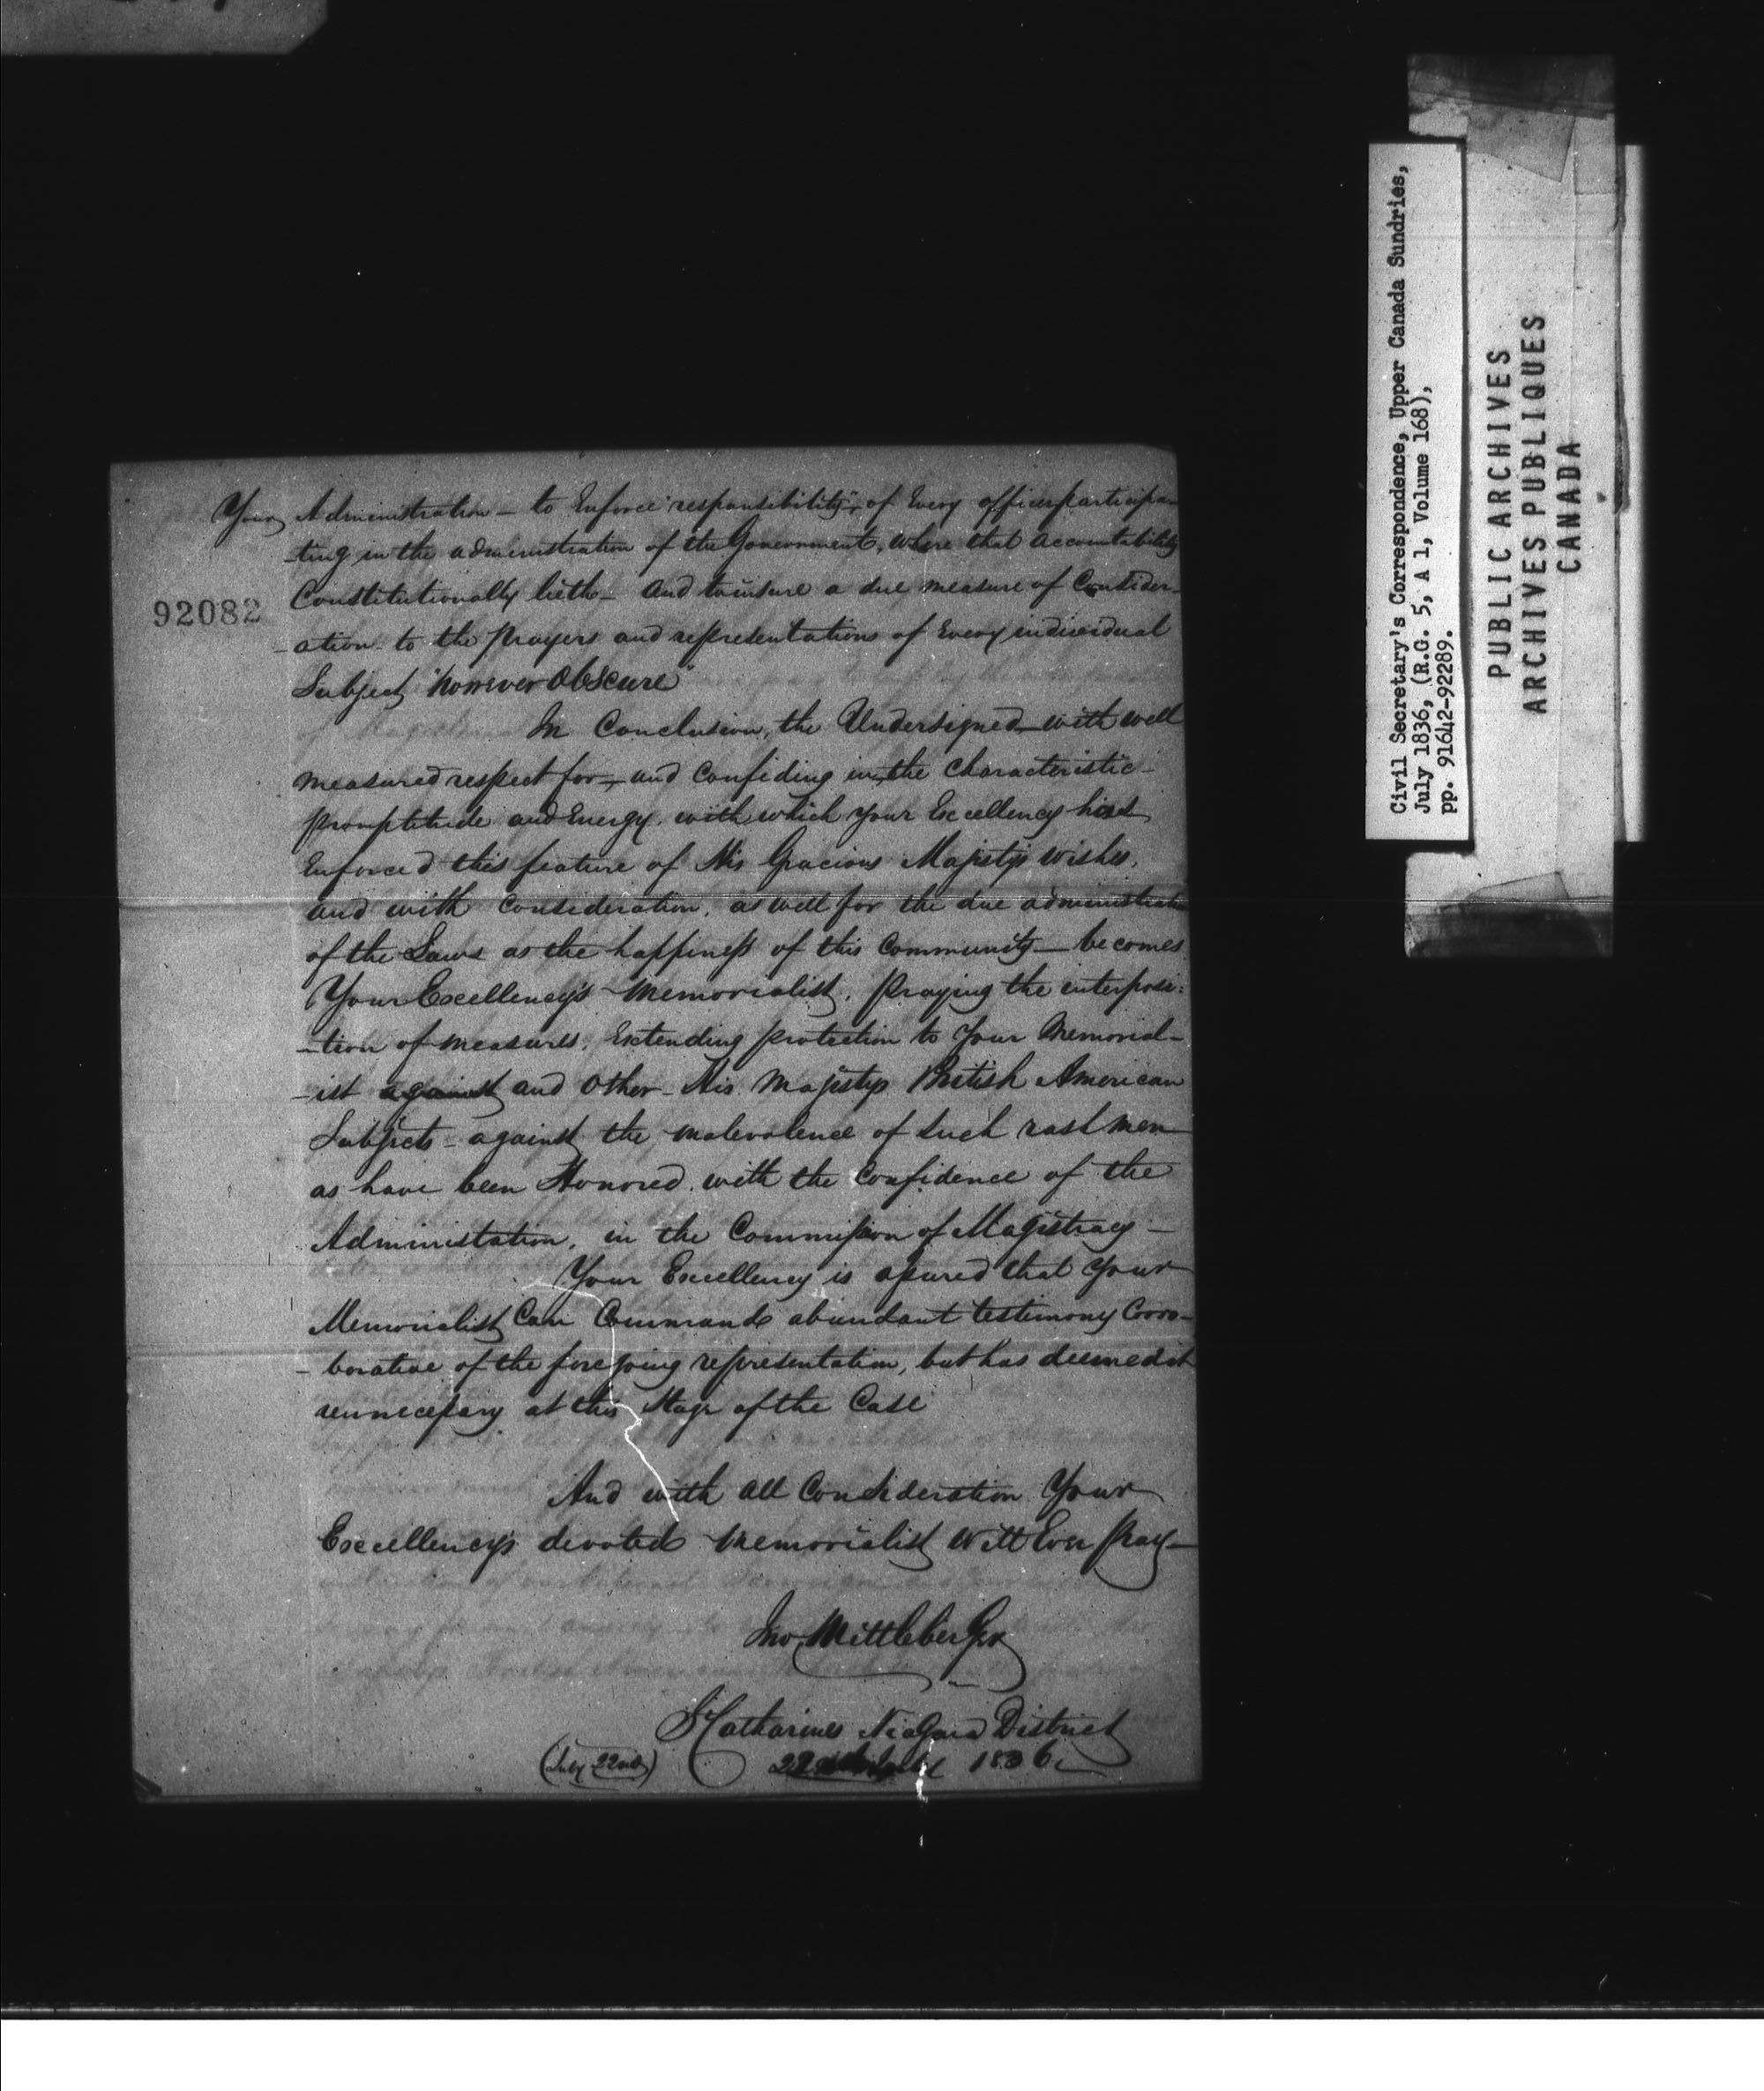 Your Administration - to Enforce "responsibility", of Every officer participa-
-ting in the administration of the Government, where that accountability
Constitutionally lieth - and to insure a due measure of Consider-
92082
-ation - to the prayers and representations of Every individual
Subject "however Obscure"
In Conclusion, the Undersigned - with well
measured respect for, - and Confiding in, the Characteristic -
promptitude and Energy, with which your Excellency
Enforced this feature of His Gracious Majesty's wishes,
and with consideration, as well for the due administration
of the Laws as the happiness of this Community - becomes
Your Excellency's Memorialist, praying the interposi:
-tion of measures, Extending protection to Your Memorial-
-ist against and other - His Majestys British American
Subjects - against the malevolence of Such rash men
as have been Honored with the Confidence of the
Administation, in the Commission of Magistracy -
Your Excellency is assured that Your
Memorialist Can Command abundant testimony Corro-
-borative of the foregoing representation, but has deemed it
unnecessary at this Stage of the Case
And with all Consideration Your
Excellency's devoted Memorialist Will Ever pray -
Jno Mittleberger
St Catharines Niagara District
(July 22nd) 1836.
Civil Secretary's Correspondence, Upper Canada Sundries,
July 1836, (R.G. 5, A 1, Volume 168),
pp. 91642-92289.
PUBLIC ARCHIVES
ARCHIVES PUBLIQUES
CANADA